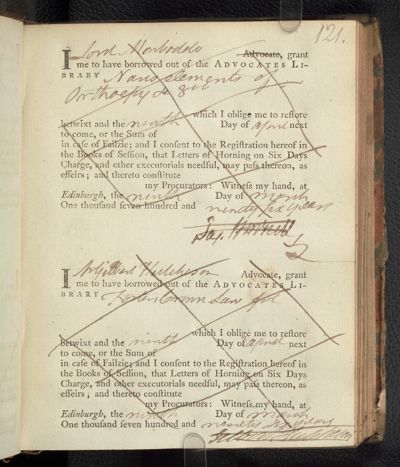 121.
I Lord Monboddo Advocate, grant
me to have borrowed out of the ADVOCATES LI-
BRARY Nares elements of
Orthoepy 8vo
which I oblige me to restore
betwixt and the ninth Day of April next
to come, or the Sum of
in case of Failzie; and I consent to the Registration hereof in
the Books of Session, that Letters of Horning on Six Days
Charge, and other executorials needful, may pass thereon, as
effeirs; and thereto constitute
my Procurators: Witness my hand, at
Edinburgh, the ninth Day of March
One thousand seven hundred and ninety six years
I Gilbert Hutcheson Advocate, grant
me to have borrowed out of the ADVOCATES LI-
BRARY Crown Law fol
which I oblige me to restore
betwixt and the ninth Day of April next
to come, or the Sum of
in case of Failzie; and I consent to the Registration hereof in
the Books of Session, that Letters of Horning on Six Days
Charge, and other executorials needful, may pass thereon, as
effeirs; and thereto constitute
my Procurators: Witness my hand, at
Edinburgh, the ninth Day of March
One thousand seven hundred and ninety six years